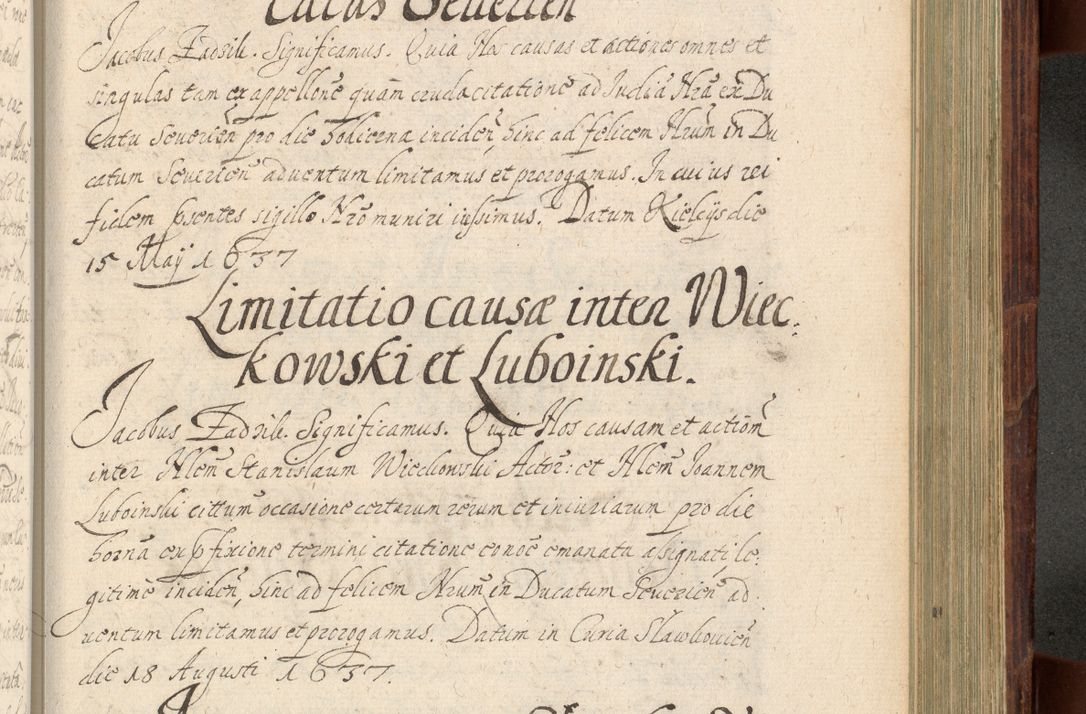 catus Severien
Jacobus Zadzik. Significamus. Quia Nos causas et actiones omnes et
singulas tam ex appellonē quam cruda citatione ad Judiā Nrā ex Du
catu Severień pro die hodierna incideń, hinc ad felicem Nrūm in Du
catum Severień adventum limitamus et prorogamus. In cuius rei
fidem pśentes sigillo Nrō muniri iussimus. Datum Kielcijs die
15 Maij 1637
Limitatio causæ inter Wiec:
kowski et Luboinski.
Jacobus Zadzik. Significamus. Quia Nos causam et actiom̄
inter Nlem̄ Stanislaum Wieckowski Actor̄: et Nlem̄ Joannem
Luboinski cittum̄ occasione certarum rerum et iniuriarum pro die
hornā ex pfixione termini citatione conōe emanata assignati le:
gitime incideń, hinc ad felicem Nrum̄ in Ducatum Severień ad
ventum limitamus et prorogamus. Datum in Curia Slawkovień
die 18 Augusti 1637.